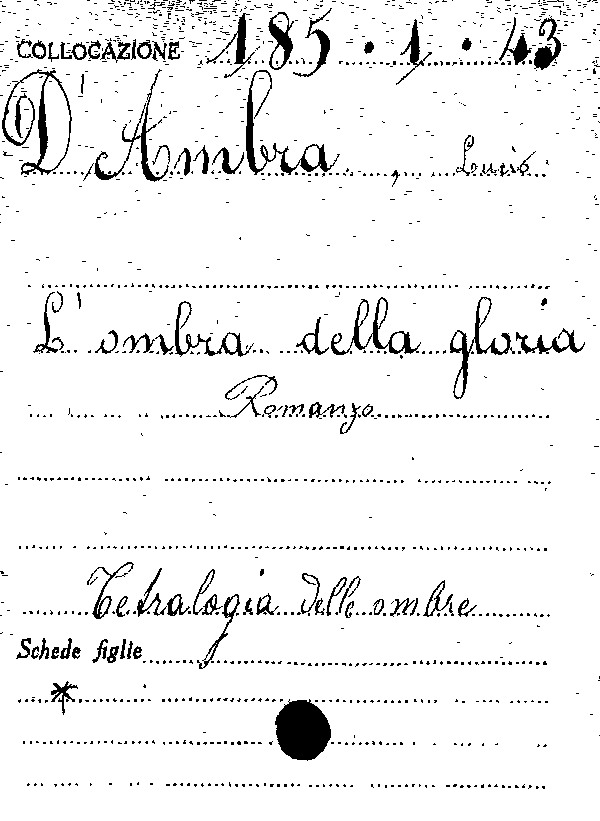 COLLOCAZIONE 185 . 1 . 43
D'Ambra , Lucio
L'ombra della gloria
Romanzo
Tetralogia delle ombre
Schede figlie
*